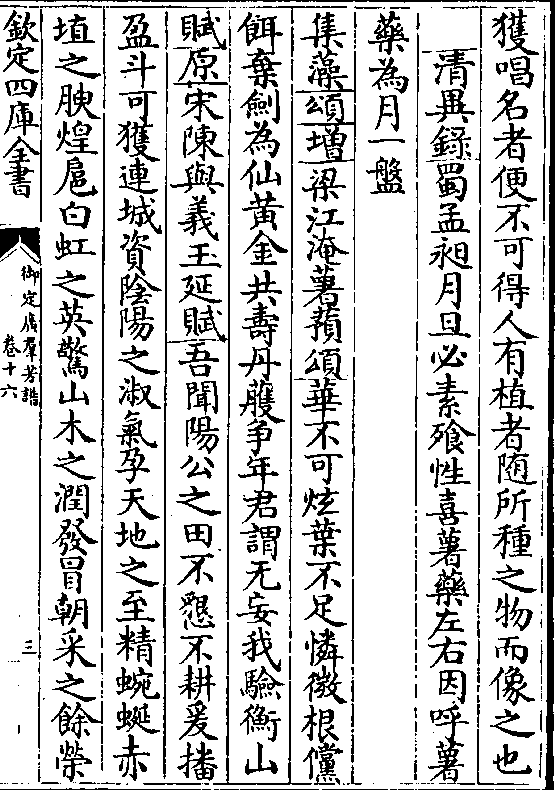 獲唱名者便不可得人有植者随所種之物而像之也
清異錄蜀孟昶月旦必素飱性喜薯藥左右因呼薯
藥為月一盤
集藻頌增梁江淹薯蕷頌華不可炫葉不足憐微根儻
餌棄劍為仙黃金共壽丹雘争年君謂无妄我驗衡山
賦原宋陳與義玉延賦吾聞陽公之田不懇不耕爰播
盈斗可獲連城資陰陽之淑氣孕天地之至精蜿蜒赤
埴之腴煌扈白虹之英驚山木之潤發冒朝采之餘榮
欽定四庫全書
御定廣羣芳譜
卷十六
三